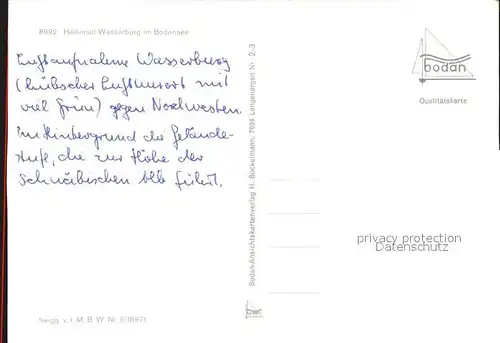 8992 Halbinsel Wasserburg im Bodensee
Luftaufnahme Wasserburg
(hübscher Luftkurort mit
viel Grün) gegen Nordwesten.
Im Hintergrund die Gelände-
stufe, die zur Höhe der
Schwäbischen Alb führt.
bodan
Qualitätskarte
Bodan-Ansichtskartenverlag H. Bockelmann, 7994 Langenargen Nr. 2-3
privacy protection
Datenschutz
bodan
freigg. v. I. M. B. W. Nr. 97/8971